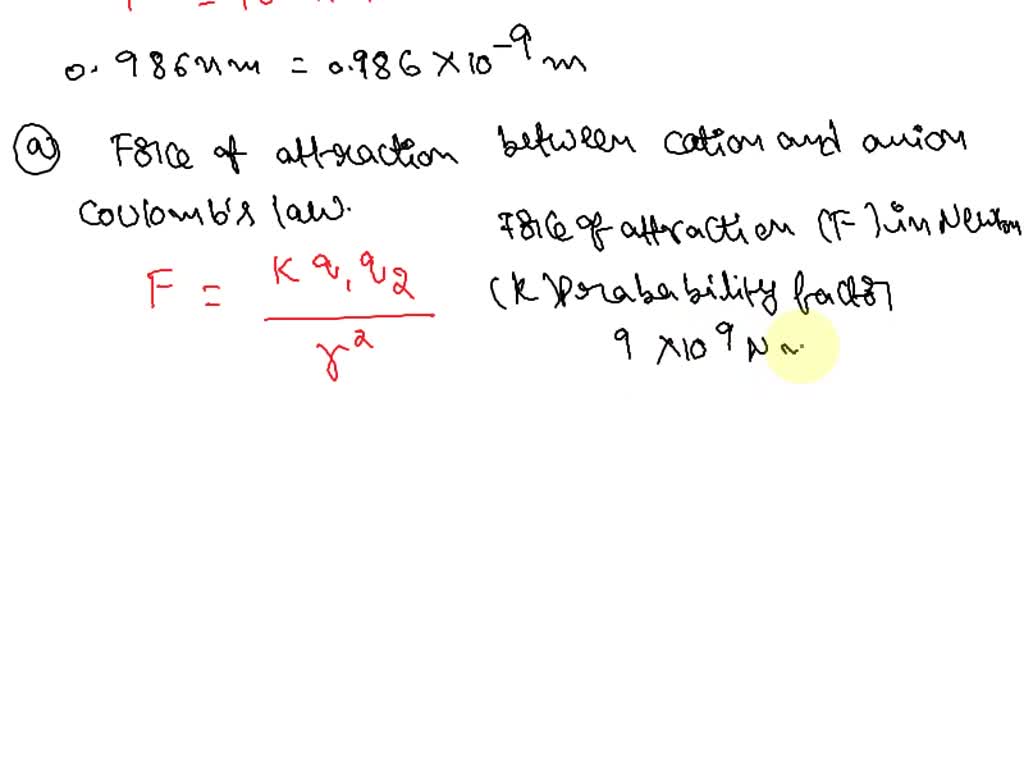 0.986nm = 0.986 × 10⁻⁹ m
(a) Force of attraction between cation and anion
Coulomb's law.
F = K q₁ q₂ / r²
Force of attraction (F) in Newton
(K) Probability factor
9 × 10⁹ N m